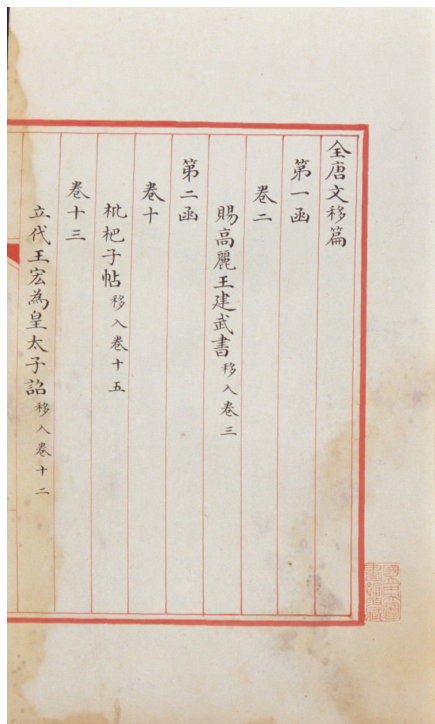 全唐文移篇
第一函
卷二
賜高麗王建武書移入卷三
第二函
卷十
枇杷子帖移入卷十五
卷十三
立代王宏為皇太子詔移入卷十二